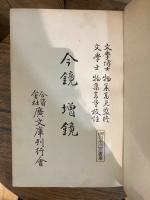 文學博士 物集高見監修
文學士 物集高量校註
今鏡 增鏡
合資
會社
廣文庫刊行會